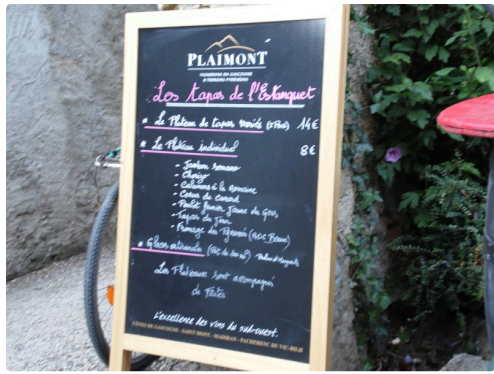 PLAIMONT
VIGNERONS EN GASCOGNE
& TERROIRS PYRÉNÉES
Les tapas de l'Estanquet
* Le Plateau de tapas variés 14€
* Le Plateau individuel 8€
- Jambon serrano
- Chorizo
- Calamars à la romaine
- Coeurs de canard
- Poulet fermier Jaune du Gers
- Tapas du Jour
- Fromage des Pyrénées
* Glace artisanale
Les Plateaux sont accompagnés
de
L'excellence des vins du sud-ouest.
CÔTES DE GASCOGNE - SAINT MONT - MADIRAN - PACHERENC DU VIC-BILH